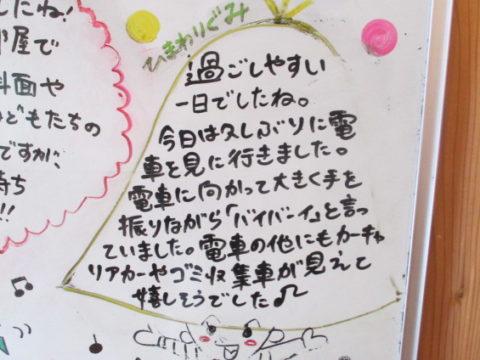 したね!
部屋で
斜面や
どもたちの
ですが、
持ち
!!
ひまわりぐみ
過ごしやすい
一日でしたね。
今日は久しぶりに電
車を見に行きました。
電車に向かって大きく手を
振りながら「バイバーイ」と言っ
ていました。電車の他にもカーキャ
リアカーやゴミ収集車が見えて
嬉しそうでした♫